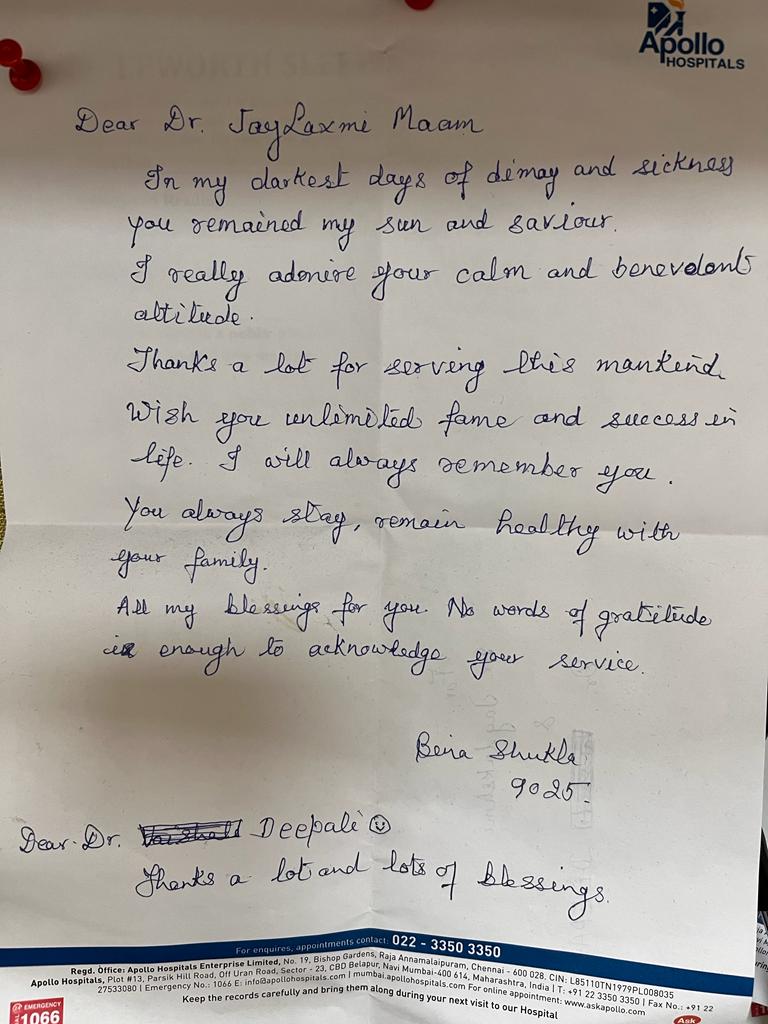 Apollo
HOSPITALS
Dear Dr. JayLaxmi Maam
In my darkest days of dimay and sickness
you remained my sun and saviour.
I really admire your calm and benevolent
attitude.
Thanks a lot for serving this mankind.
Wish you unlimited fame and success in
life. I will always remember you.
You always stay, remain healthy with
your family.
All my blessings for you. No words of gratitude
is enough to acknowledge your service.
Beina Shukla
9025.
Dear Dr. Deepali ☺
Thanks a lot and lots of blessings.
For enquires, appointments contact: 022 - 3350 3350
Regd. Office: Apollo Hospitals Enterprise Limited, No. 19, Bishop Gardens, Raja Annamalaipuram, Chennai - 600 028. CIN: L85110TN1979PLC008035
Apollo Hospitals, Plot #13, Parsik Hill Road, Off Uran Road, Sector - 23, CBD Belapur, Navi Mumbai-400 614, Maharashtra, India | T: +91 22 3350 3350 | Fax No.: +91 22
27533080 | Emergency No.: 1066 E: info@apollohospitals.com | mumbai.apollohospitals.com For online appointment: www.askapollo.com
Keep the records carefully and bring them along during your next visit to our Hospital
EMERGENCY
1066
Ask